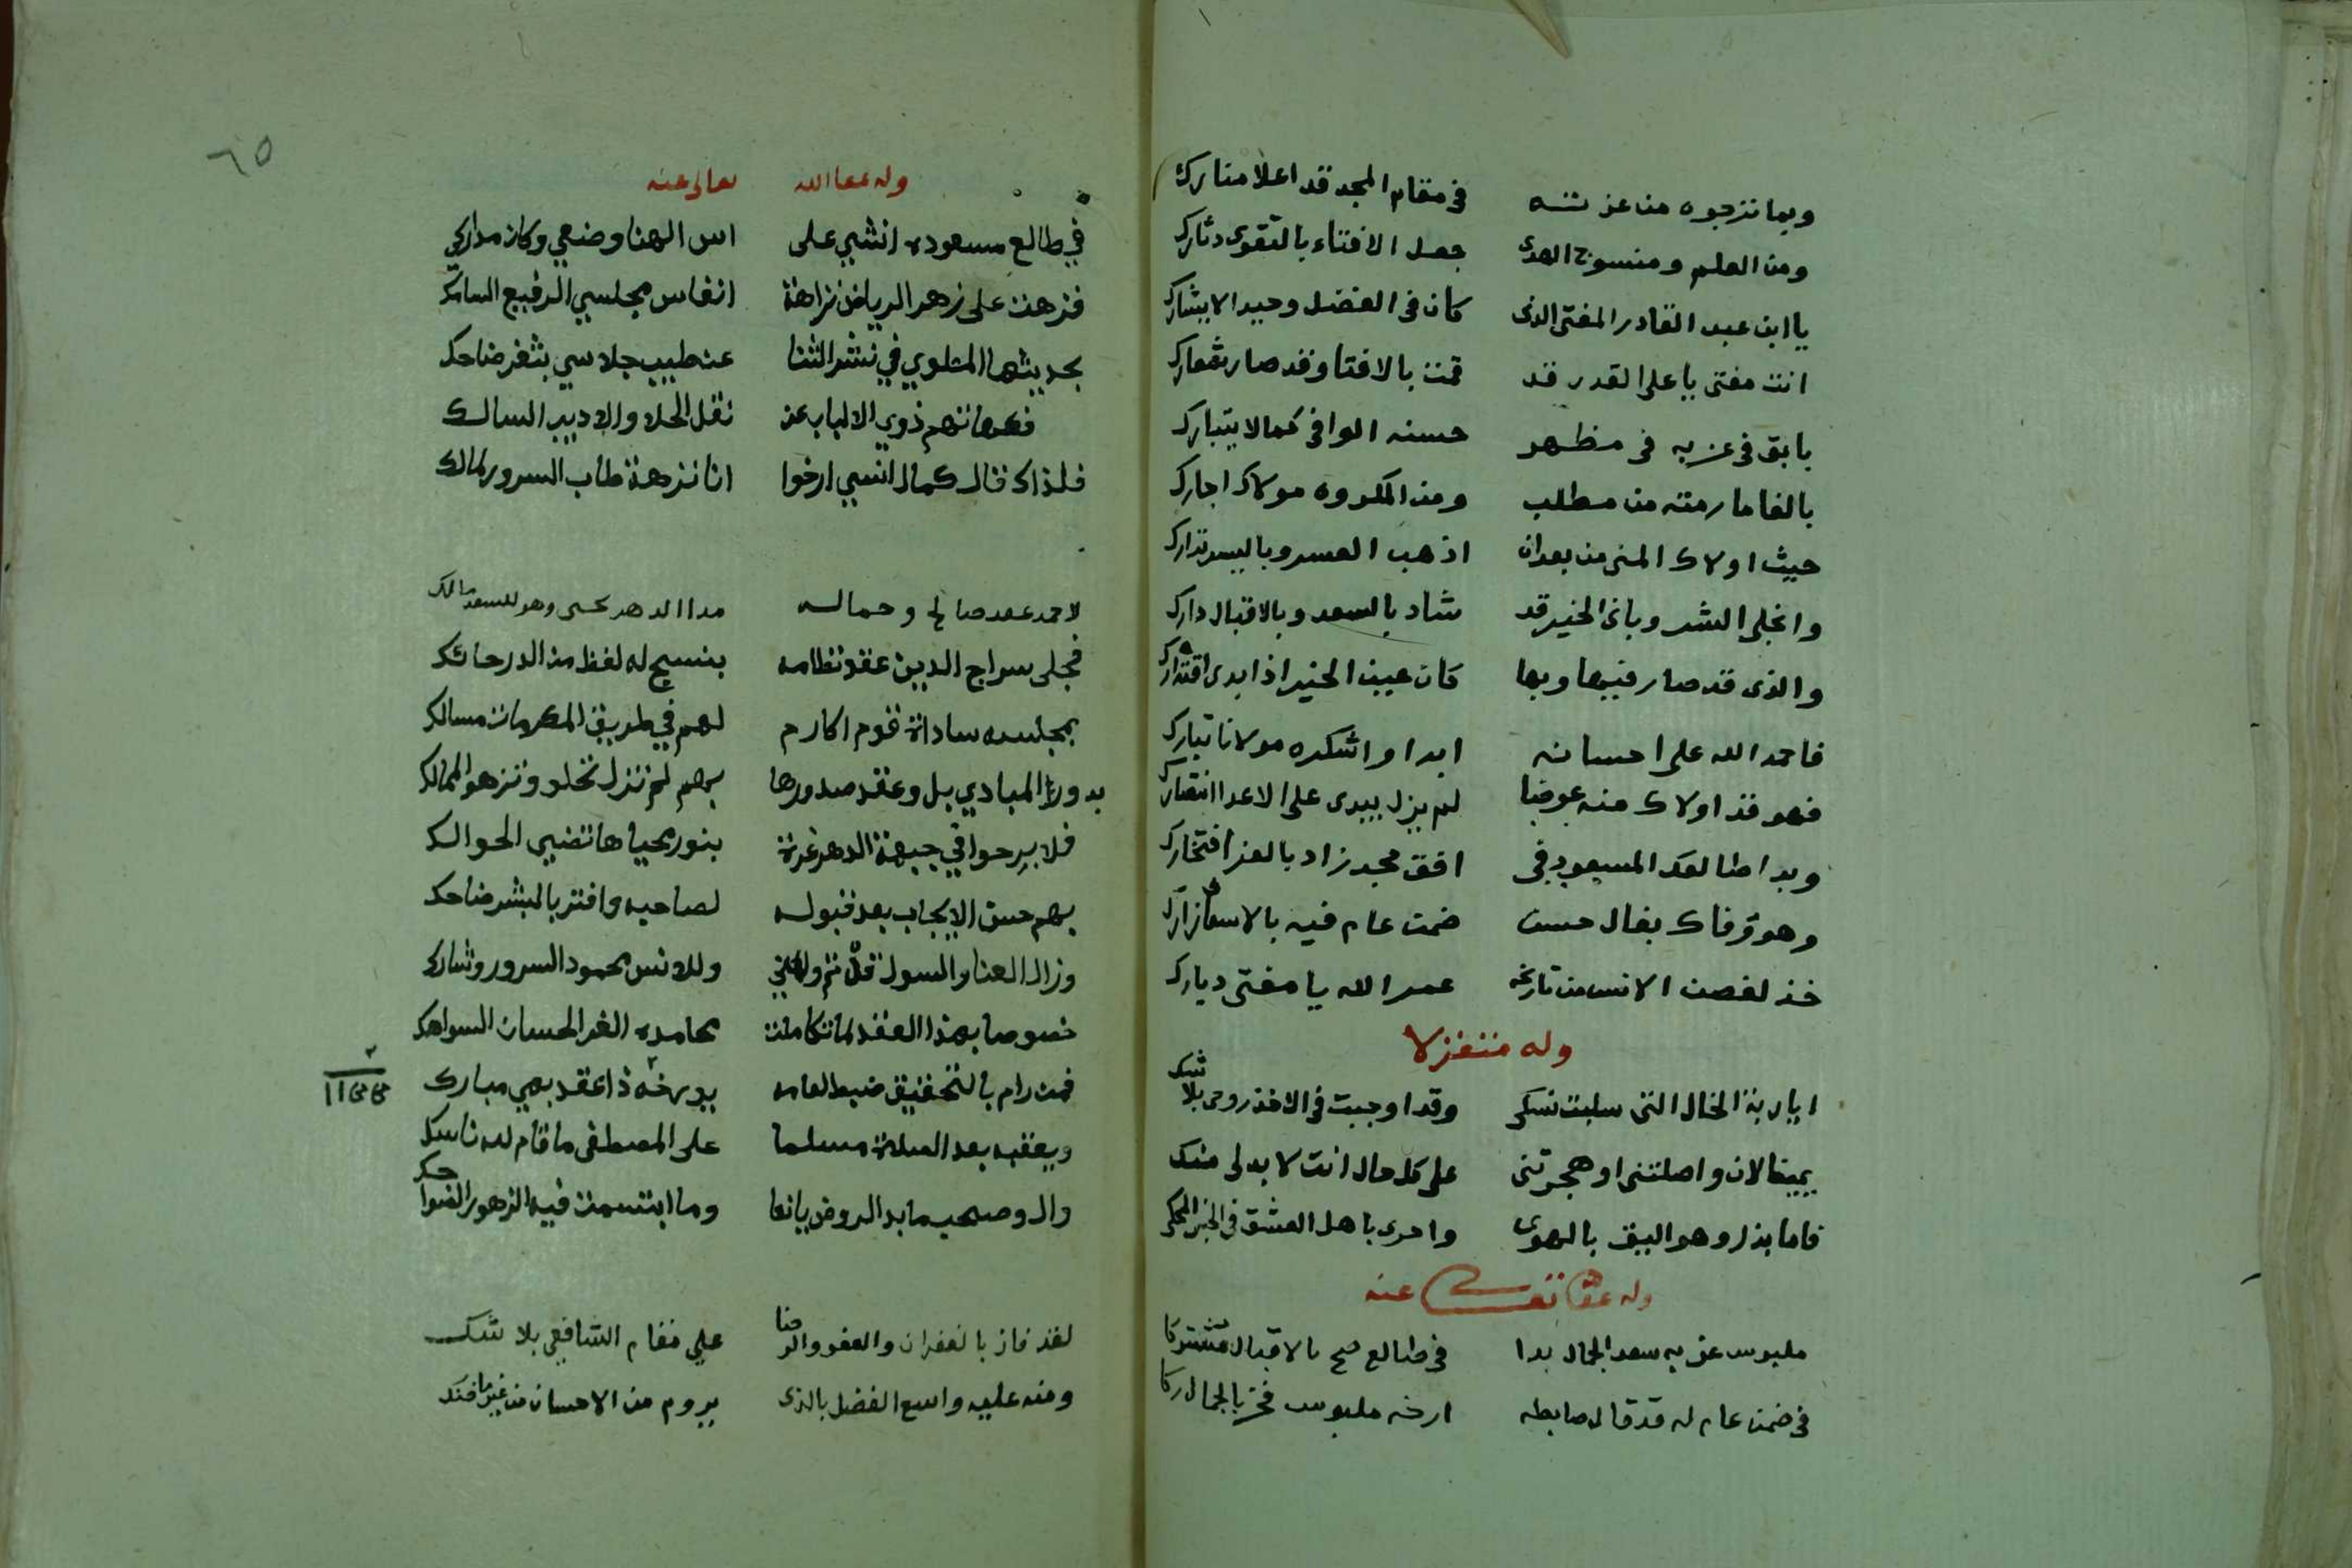 وبما نزجوه من عز
في مقام المجد قد اعلا منارك
ومن العلم ومنسوج الهدى
جعل الافتاء بالتقوى دثارك
يا ابن عبد القادر المفتي الذي
كان في الفضل وحيدا لا يشارك
انت مفتي يا على القدر قد
قمت بالافتا وقد صار شعارك
بابق في عز به في مظهر
حسنه الوافي كمالا يتبارك
بالغا ما رمته من مطلب
ومن المكروه مولاك اجارك
حيث اولاك المنى من بعد ان
اذهب العسر وباليسر تدارك
وانجلى الشر وبانى الخير قد
شاد بالسعد وبالاقبال دارك
والذي قد صار فيها وبها
كان عين الخير اذ ابدى اقتدارك
فاحمد الله على احسانه
ابدا واشكره مولانا تبارك
فهو قد اولاك منه عوضا
لم يزل يبدى على الاعدا انتصارك
وبدا طالعك المسعود في
افق مجد زاد بالعز افتخارك
وهو وفاك بفال حسن
ضمن عام فيه بالاسعاف زارك
خذ لغصن الانس من تاريخه
عمر الله يا مفتى ديارك
وله متغزلا
ايا ربة الخال التي سلبت نسكى
وقد اوجبت في الاخذ روحى بلا شك
يمينا لان واصلتنى او هجرتنى
على كل حال انت لا بد لى منك
فاما بذل وهو اليق بالهوى
واحرى باهل العشق في الخبر المحكى
وله عفا الله تعالى عنه
ملبوس عز به سعد الجمال بدا
في طالع صح بالاقبال مشتركا
في ضمن عام له قد قال ضابطه
ارخه ملبوس فخر بالجمال زكا
٦٥
وله عفا الله تعالى عنه
في طالع مسعوده انشي على
اس الهنا وضعي وكان مداركي
فزهت على زهر الرياض نزاهة
انفاس مجلسي الرفيع السامك
بحديثها المتلوي في نشر الثنا
عن طيب جلاسي بثغر ضاحك
ذوي الالباب عن
نقل الخلا والاديب السالك
فلذاك قال كمال انسي ارخوا
انا نزهة طاب السرور لمالك
لاحمد عقد صالح وجماله
مدا الدهر يحسن وهو للسعد مالك
فجلى سراج الدين عقد نظامه
بنسج له لفظ من الدر حائك
بمجلسه سادات قوم اكارم
لهم في طريق المكرمات مسالك
بدور المبادي بل وعقد صدورها
بهم لم تزل تحلو وتزهو الممالك
فلا برحوا في جبهة الدهر غرة
بنور محياها تضيى الحوالك
بهم حسن الايجاب بعد قبوله
لصاحبه وافتر بالبشر ضاحك
وزال العنا والسول قد تم والمنى
وللانس محمود السرور وشارك
خصوصا بهذا العقد لما تكاملت
محامده الغر الحسان السواهك
فمن رام بالتحقيق ضبط لعامه
يورخه ذا عقد بهي مبارك
ويعقبه بعد الصلاة مسلما
على المصطفى ما قام لله ناسك
وال وصحب ما بدا الروض يانعا
وما ابتسمت فيه الزهور الضواحك
لقد فاز بالغفران والعفو والرضا
على مقام الشافعي بلا شك
ومنه عليه واسع الفضل بالذي
يروم من الاحسان من غير ما ضنك